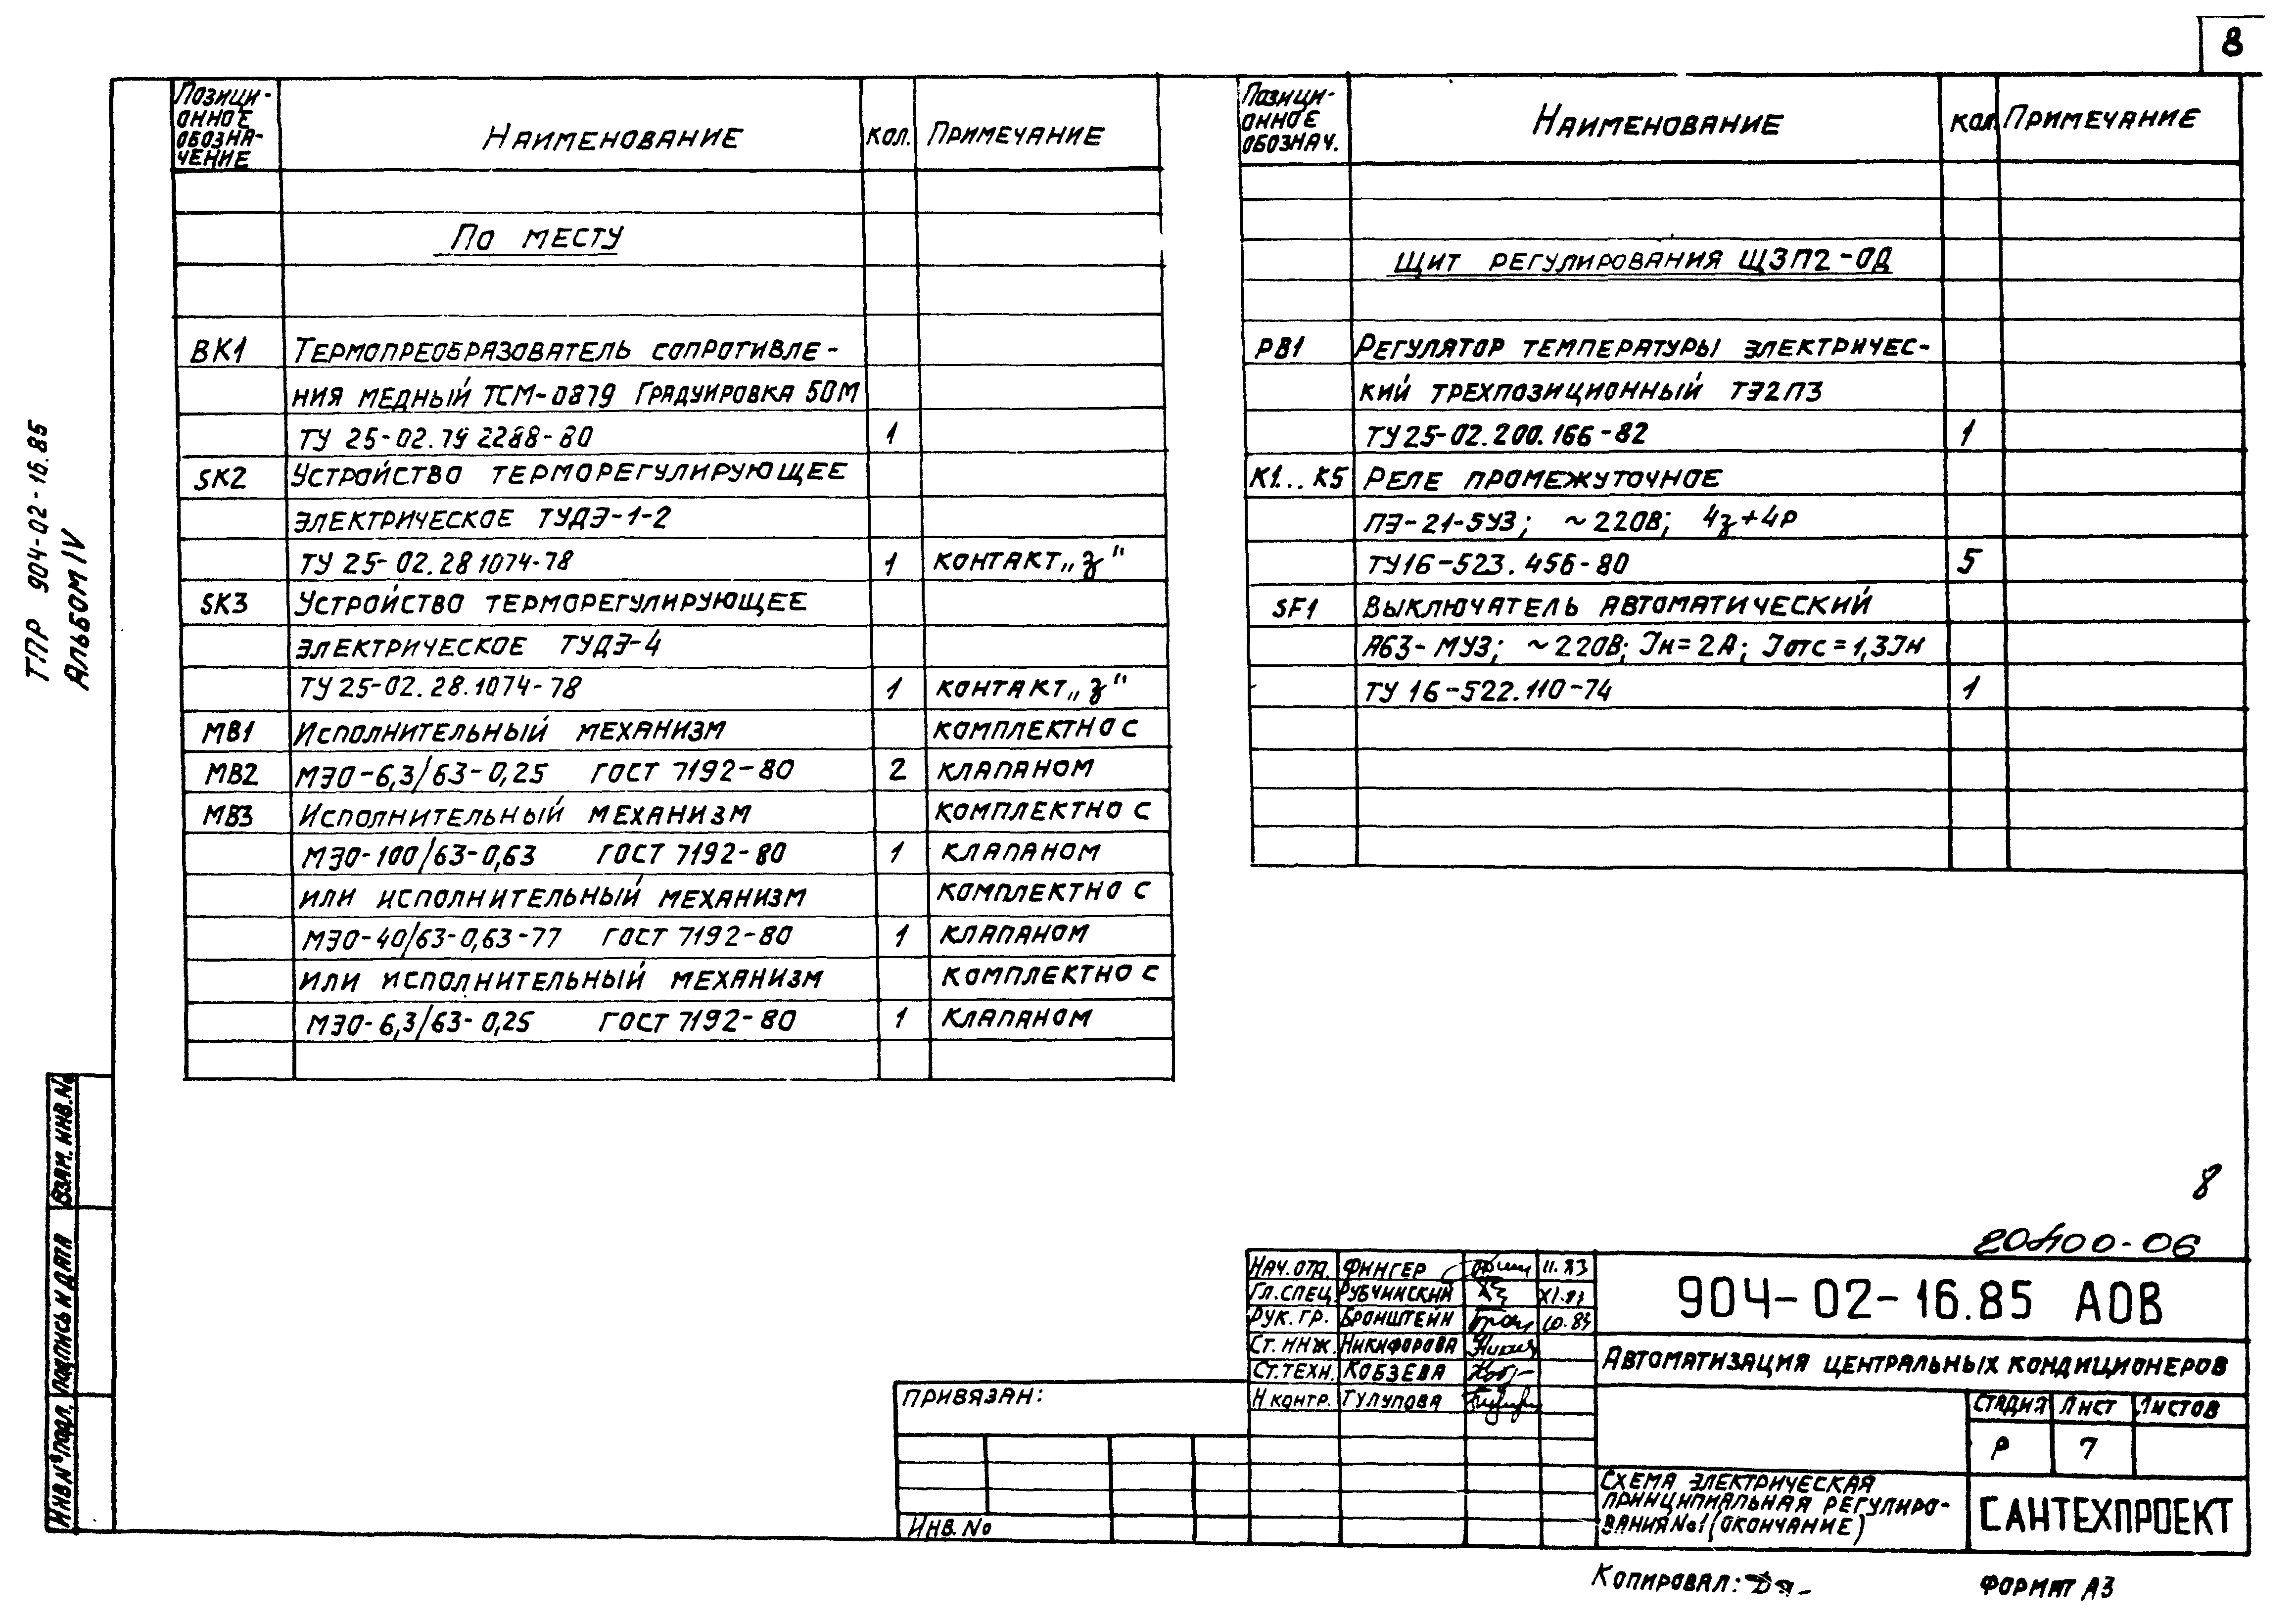 8
ТПР 904-02-16.85
Альбом IV
Позици-
онное
обозна-
чение
Наименование
кол.
Примечание
По месту
ВК1 Термопреобразователь сопротивле-
ния медный ТСМ-0879 Градуировка 50М
ТУ 25-02.79 2288-80 1
SK2 Устройство терморегулирующее
электрическое ТУДЭ-1-2
ТУ 25-02.28 1074-78 1 контакт „з"
SK3 Устройство терморегулирующее
электрическое ТУДЭ-4
ТУ 25-02.28.1074-78 1 контакт „з"
МВ1 Исполнительный механизм комплектно с
МВ2 МЭО-6,3/63-0,25 ГОСТ 7192-80 2 клапаном
МВ3 Исполнительный механизм комплектно с
МЭО-100/63-0,63 ГОСТ 7192-80 1 клапаном
или исполнительный механизм комплектно с
МЭО-40/63-0,63-77 ГОСТ 7192-80 1 клапаном
или исполнительный механизм комплектно с
МЭО-6,3/63-0,25 ГОСТ 7192-80 1 клапаном
Позици-
онное
обознач.
Наименование
кол.
Примечание
Щит регулирования ЩЗП2-ОД
РВ1 Регулятор температуры электричес-
кий трехпозиционный ТЭ2П3
ТУ 25-02.200.166-82 1
К1...К5 Реле промежуточное
ПЭ-21-5У3; ~220В; 4з+4р
ТУ16-523.456-80 5
SF1 Выключатель автоматический
А63-МУ3; ~220В; Iн=2А; Iотс=1,3Iн
ТУ 16-522.110-74 1
8
20400-06
Нач. отд. Фингер 11.83
Гл. спец. Рубчинский XI.83
Рук. гр. Бронштейн 10.83
Ст. инж. Никифорова
Ст. техн. Кобзева
Н контр. Тулупова
904-02-16.85 АОВ
Автоматизация центральных кондиционеров
Стадия Лист Листов
Р 7
Схема электрическая
принципиальная регулиро-
вания №1 (окончание)
САНТЕХПРОЕКТ
Привязан:
Инв. №
Взам. инв. №
Подпись и дата
Инв. № подл.
Копировал:
Формат А3